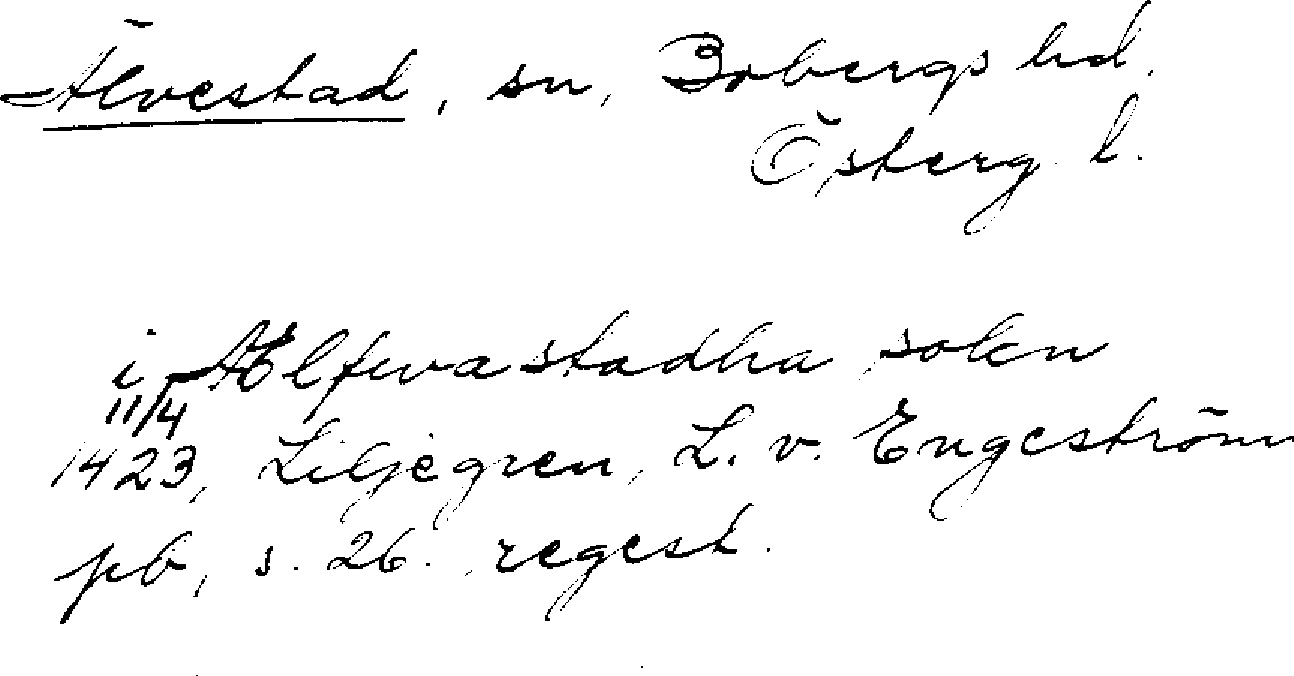 Älvestad, sn, Bobergs hd,
Österg. l.
i Ælfwastadha sokn
11/4
1423, Liljegren, L. v. Engeström
pb, s. 26. regest.